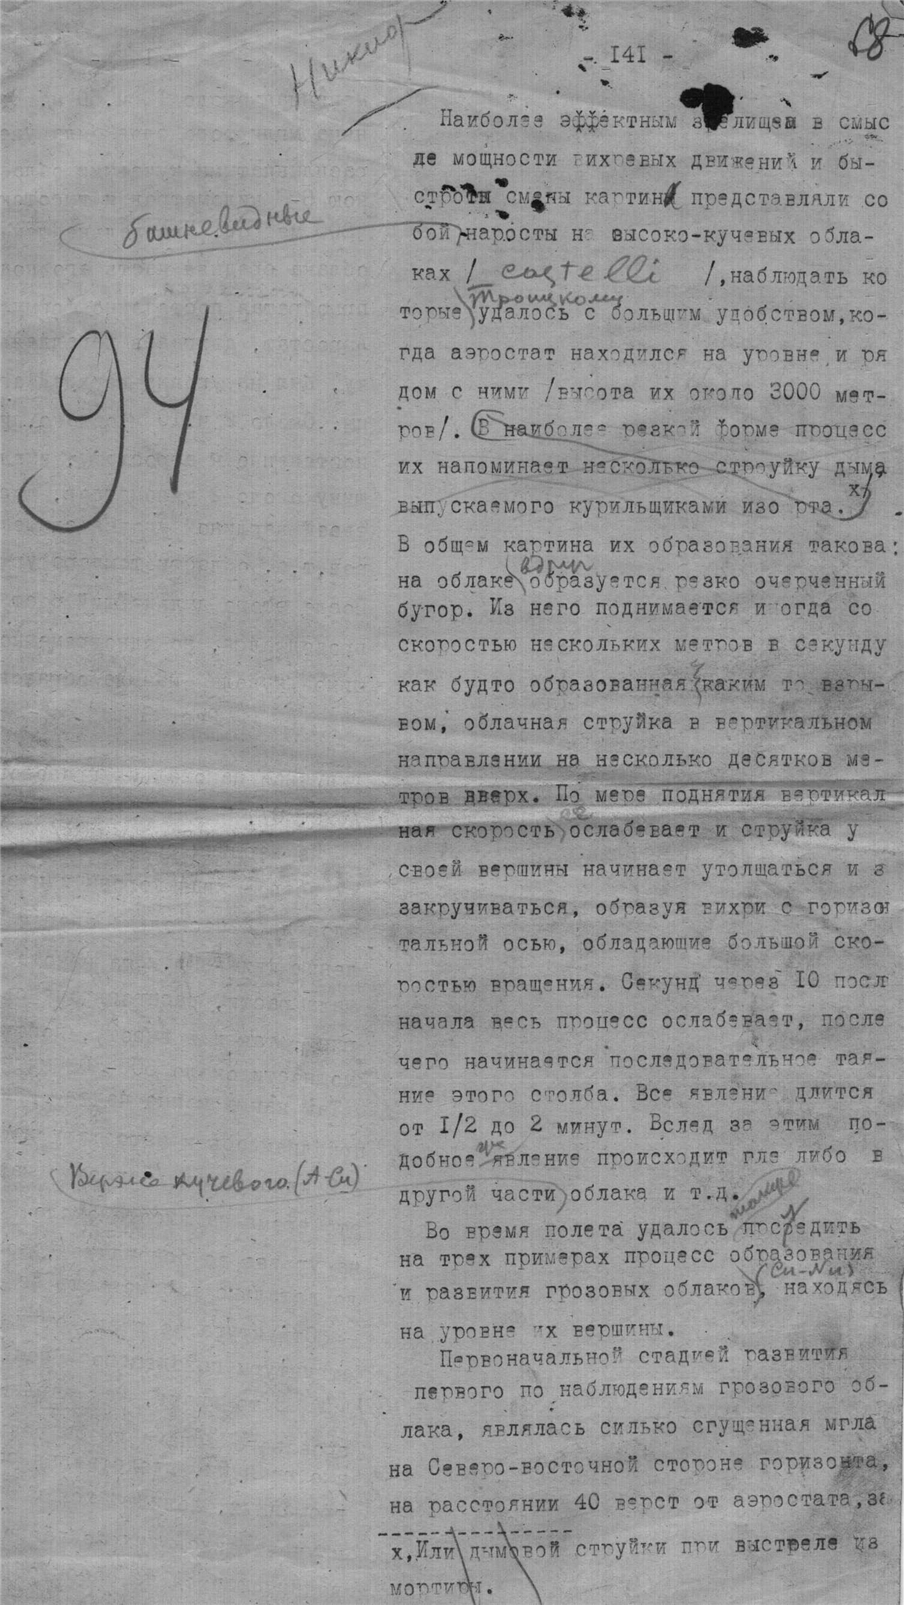 - 141 -
68
Наиболее эффектным зрелищем в смыс
ле мощности вихревых движений и бы-
строты смены картины представляли со
башневидные
бой наросты на высоко-кучевых обла-
ках / castelli /, наблюдать ко
Троицкому
торые удалось с большим удобством, ко-
94
гда аэростат находился на уровне и ря
дом с ними /высота их около 3000 мет-
ров/. В наиболее резкой форме процесс
их напоминает несколько струйку дыма,
выпускаемого курильщиками изо рта. х/
В общем картина их образования такова:
вдруг
на облаке образуется резко очерченный
бугор. Из него поднимается иногда со
скоростью нескольких метров в секунду
как будто образованная каким то взры-
вом, облачная струйка в вертикальном
направлении на несколько десятков ме-
тров вверх. По мере поднятия вертикал
ее
ная скорость ослабевает и струйка у
своей вершины начинает утолщаться и з
закручиваться, образуя вихри с горизон
тальной осью, обладающие большой ско-
ростью вращения. Секунд через 10 посл
начала весь процесс ослабевает, после
чего начинается последовательное тая-
ние этого столба. Все явление длится
от 1/2 до 2 минут. Вслед за этим по-
же
добное явление происходит где либо в
кучевого (A Cu)
другой части облака и т.д.
также
Во время полета удалось проследить
на трех примерах процесс образования
(Cu-Ni)
и развития грозовых облаков, находясь
на уровне их вершины.
Первоначальной стадией развития
первого по наблюдениям грозового об-
лака, являлась силько сгущенная мгла
на Северо-восточной стороне горизонта,
на расстоянии 40 верст от аэростата, за
х, Или дымовой струйки при выстреле из
мортиры.